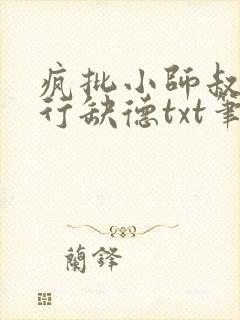 疯批小師叔
行缺德txt筆
蘭鋒